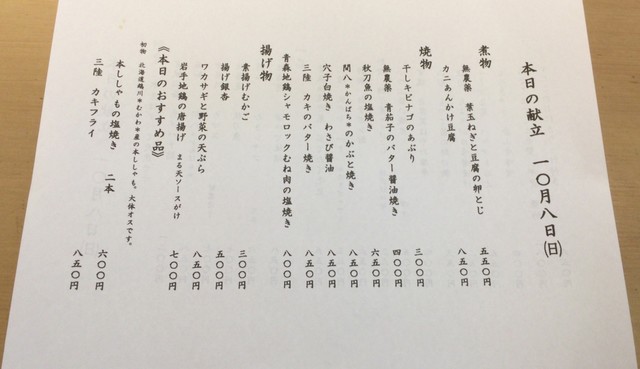 本日の献立 一〇月八日(日)
煮物
無農薬 葉玉ねぎと豆腐の卵とじ 五五〇円
カニあんかけ豆腐 八五〇円
焼物
干しキビナゴのあぶり 三〇〇円
無農薬 青茄子のバター醤油焼き 四〇〇円
秋刀魚の塩焼き 六五〇円
間八*かんぱち*のかぶと焼き 八五〇円
穴子白焼き わさび醤油 八五〇円
三陸 カキのバター焼き 八五〇円
青森地鶏シャモロックむね肉の塩焼き 八〇〇円
揚げ物
素揚げむかご 三〇〇円
揚げ銀杏 五〇〇円
ワカサギと野菜の天ぷら 八五〇円
岩手地鶏の唐揚げ まる天ソースがけ 七〇〇円
《本日のおすすめ品》
初物 北海道鵡川*むかわ*産の本ししゃも。大体オスです。
本ししゃもの塩焼き 二本 六〇〇円
三陸 カキフライ 八五〇円